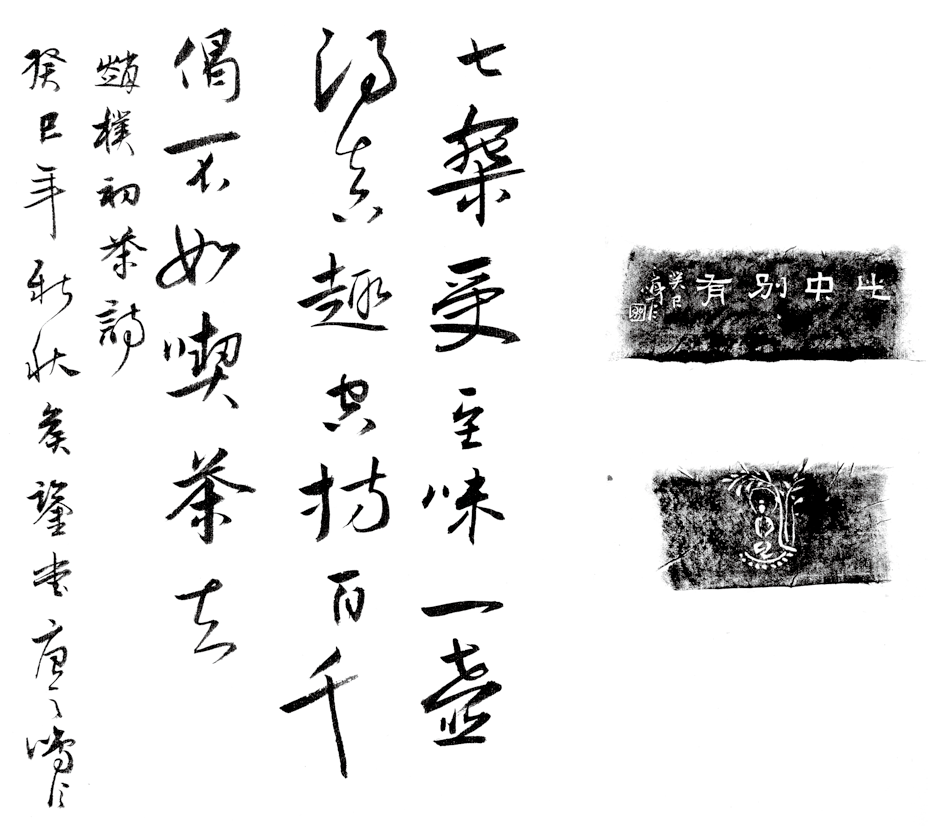 此中別有
癸巳
七椀受至味一壺
得真趣空持百千
偈不如喫茶去
趙樸初茶詩
癸巳年新秋